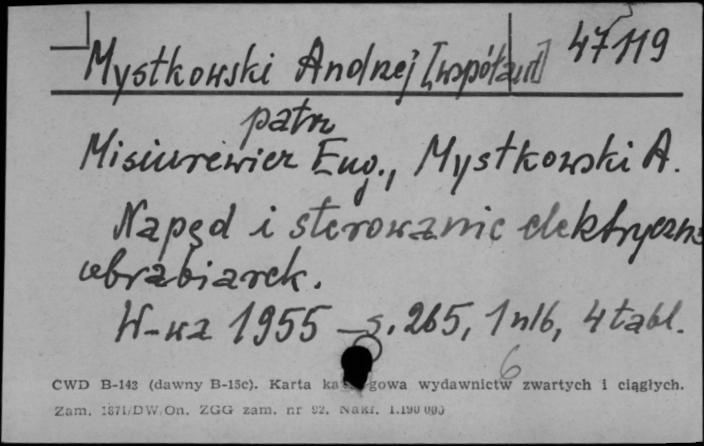 Mystkowski Andrzej [współaut] 47119
patrz
Misiurewicz Eug., Mystkowski A.
Napęd i sterowanie elektryczne
obrabiarek.
W-wa 1955 – s. 265, 1 nlb, 4 tabl.
6
CWD B-143 (dawny B-15c). Karta katalogowa wydawnictw zwartych i ciągłych.
Zam. 1871/DW/On. ZGG zam. nr 92. Nakł. 1.190 000